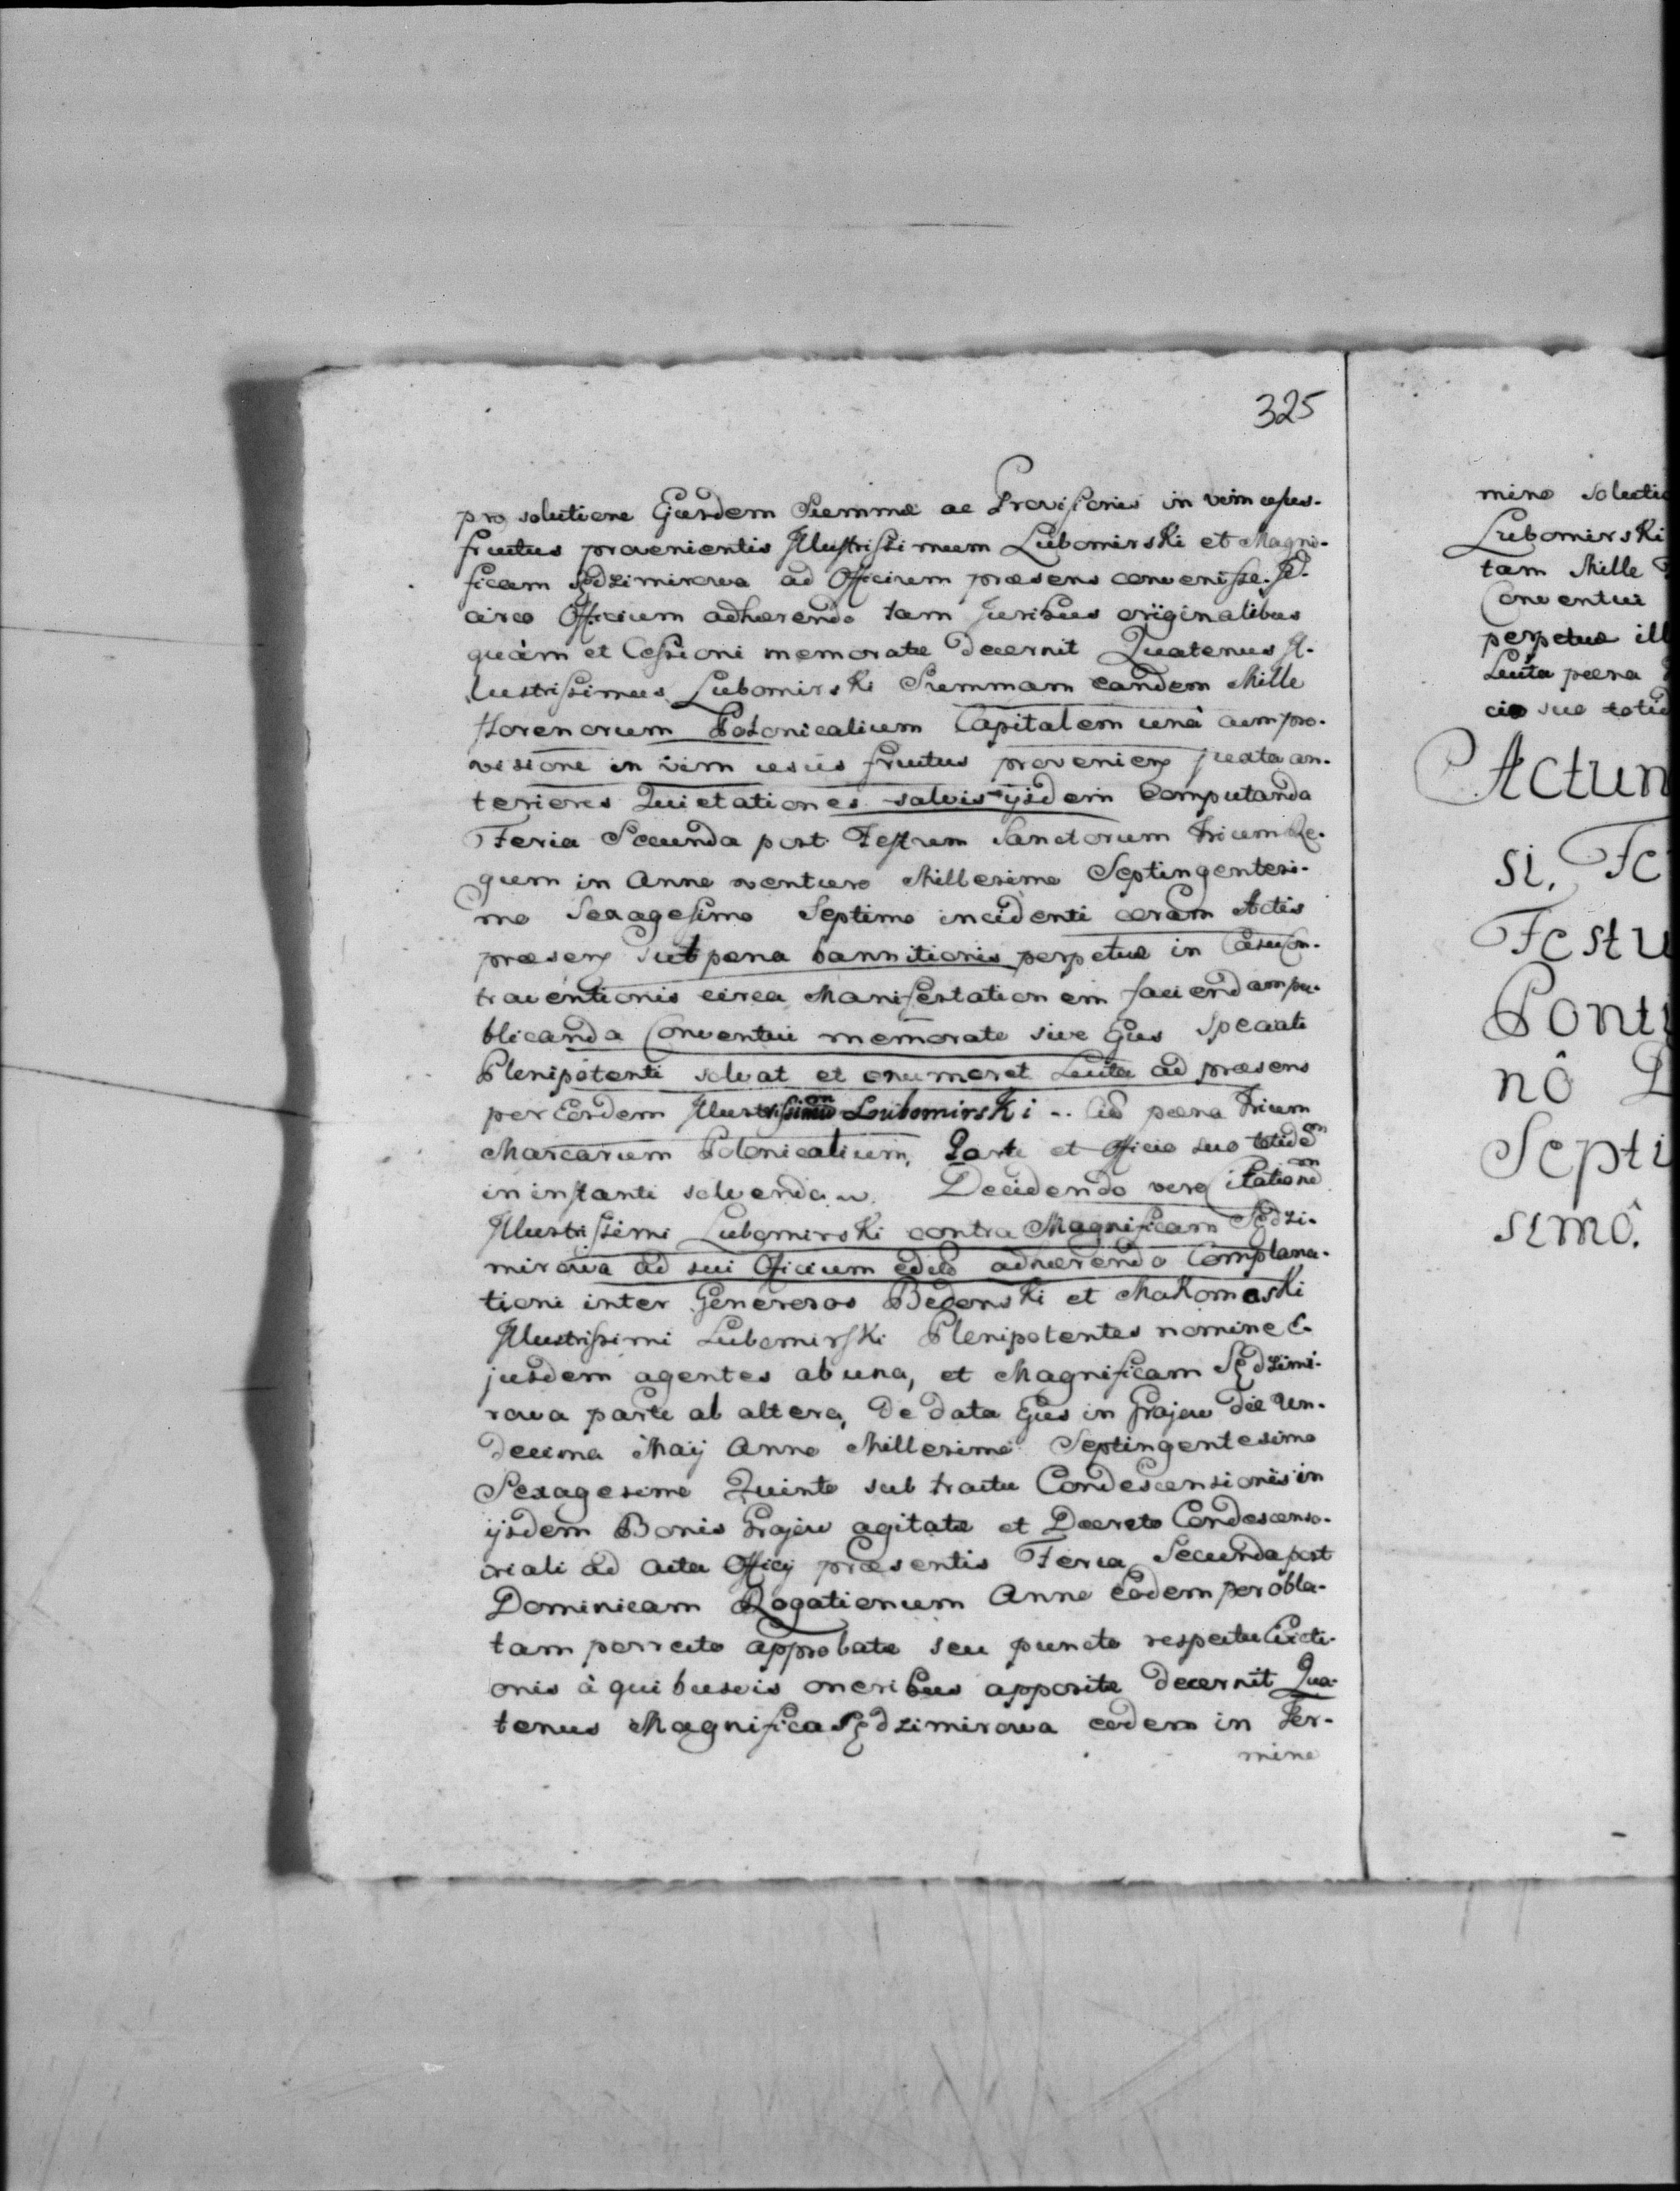 325
pro solutione Ejusdem Summæ ac Provisionis in vim usus-
fructus provenientis Illustrissimum Lubomirski et Magni-
ficam Sędzimirowa ad Officium præsens convenisse. Id-
circo Officium adhærendo tam Juribus originalibus
quàm et Cessioni memoratæ decernit Quatenus Il-
lustrissimus Lubomirski Summam eandem Mille
florenorum Polonicalium Capitalem unà cum pro-
visione in vim usûs fructus provenien juxta an-
teriores Quietationes salvis ijsdem Computanda
Feria Secunda post Festum Sanctorum Trium Re-
gum in Anno venturo Millesimo Septingentesi-
mo Sexagesimo Septimo incidenti coram Actis
præsen sub pœna bannitionis perpetuæ in Casu Con-
traventionis circa Manifestationem faciendam pu-
blicanda Conventui memorato sive Ejus speciali
Plenipotenti solvat et enumeret Luita ad præsens
per Eundem Illustrissimum Lubomirski .. Cio pœna Trium
Marcarum Polonicalium, Parti et Officio suo totidem
in instanti solvenda. Decidendo vero Citationem
Illustrissimi Lubomirski contra Magnificam Sędzi-
mirowa ad sui Officium edito adhærendo Complana-
tioni inter Generosos Bedonski et Makomaski
Illustrissimi Lubomirski Plenipotentes nomine E-
jusdem agentes ab una, et Magnificam Sędzimi-
rowa parte ab altera, de data Ejus in Grajow die Un-
decima Maij Anno Millesimo Septingentesimo
Sexagesimo Quinto sub tractu Condescensionis in
ijsdem Bonis Grajow agitatæ et Decreto Condescenso-
riali ad Acta Officij præsentis Feria Secunda post
Dominicam Rogationum Anno eodem per obla-
tam porrecto approbatæ seu puncto respectu Evicti-
onis à quibusvis oneribus apposito decernit Qua-
tenus Magnifica Sędzimirowa eodem in Ter-
mino
mino solutio
Lubomirski
tam Mille
Conventui
perpetuæ ill
Luita pœna
cio suo totid
Actum
si. Fe
Festu
Ponti
nô D
Septi
simô.